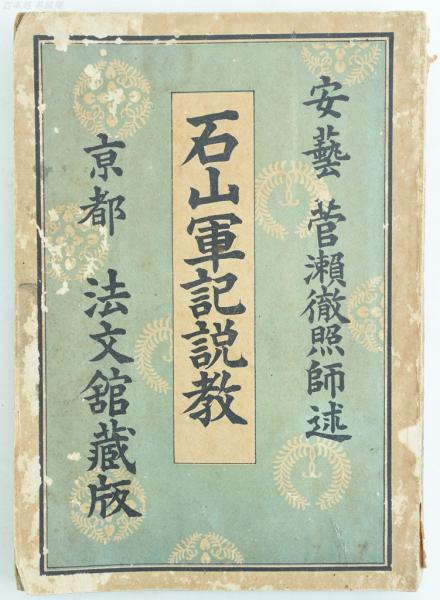 安藝 菅瀨徹照師述
石山軍記説教
京都 法文舘藏版